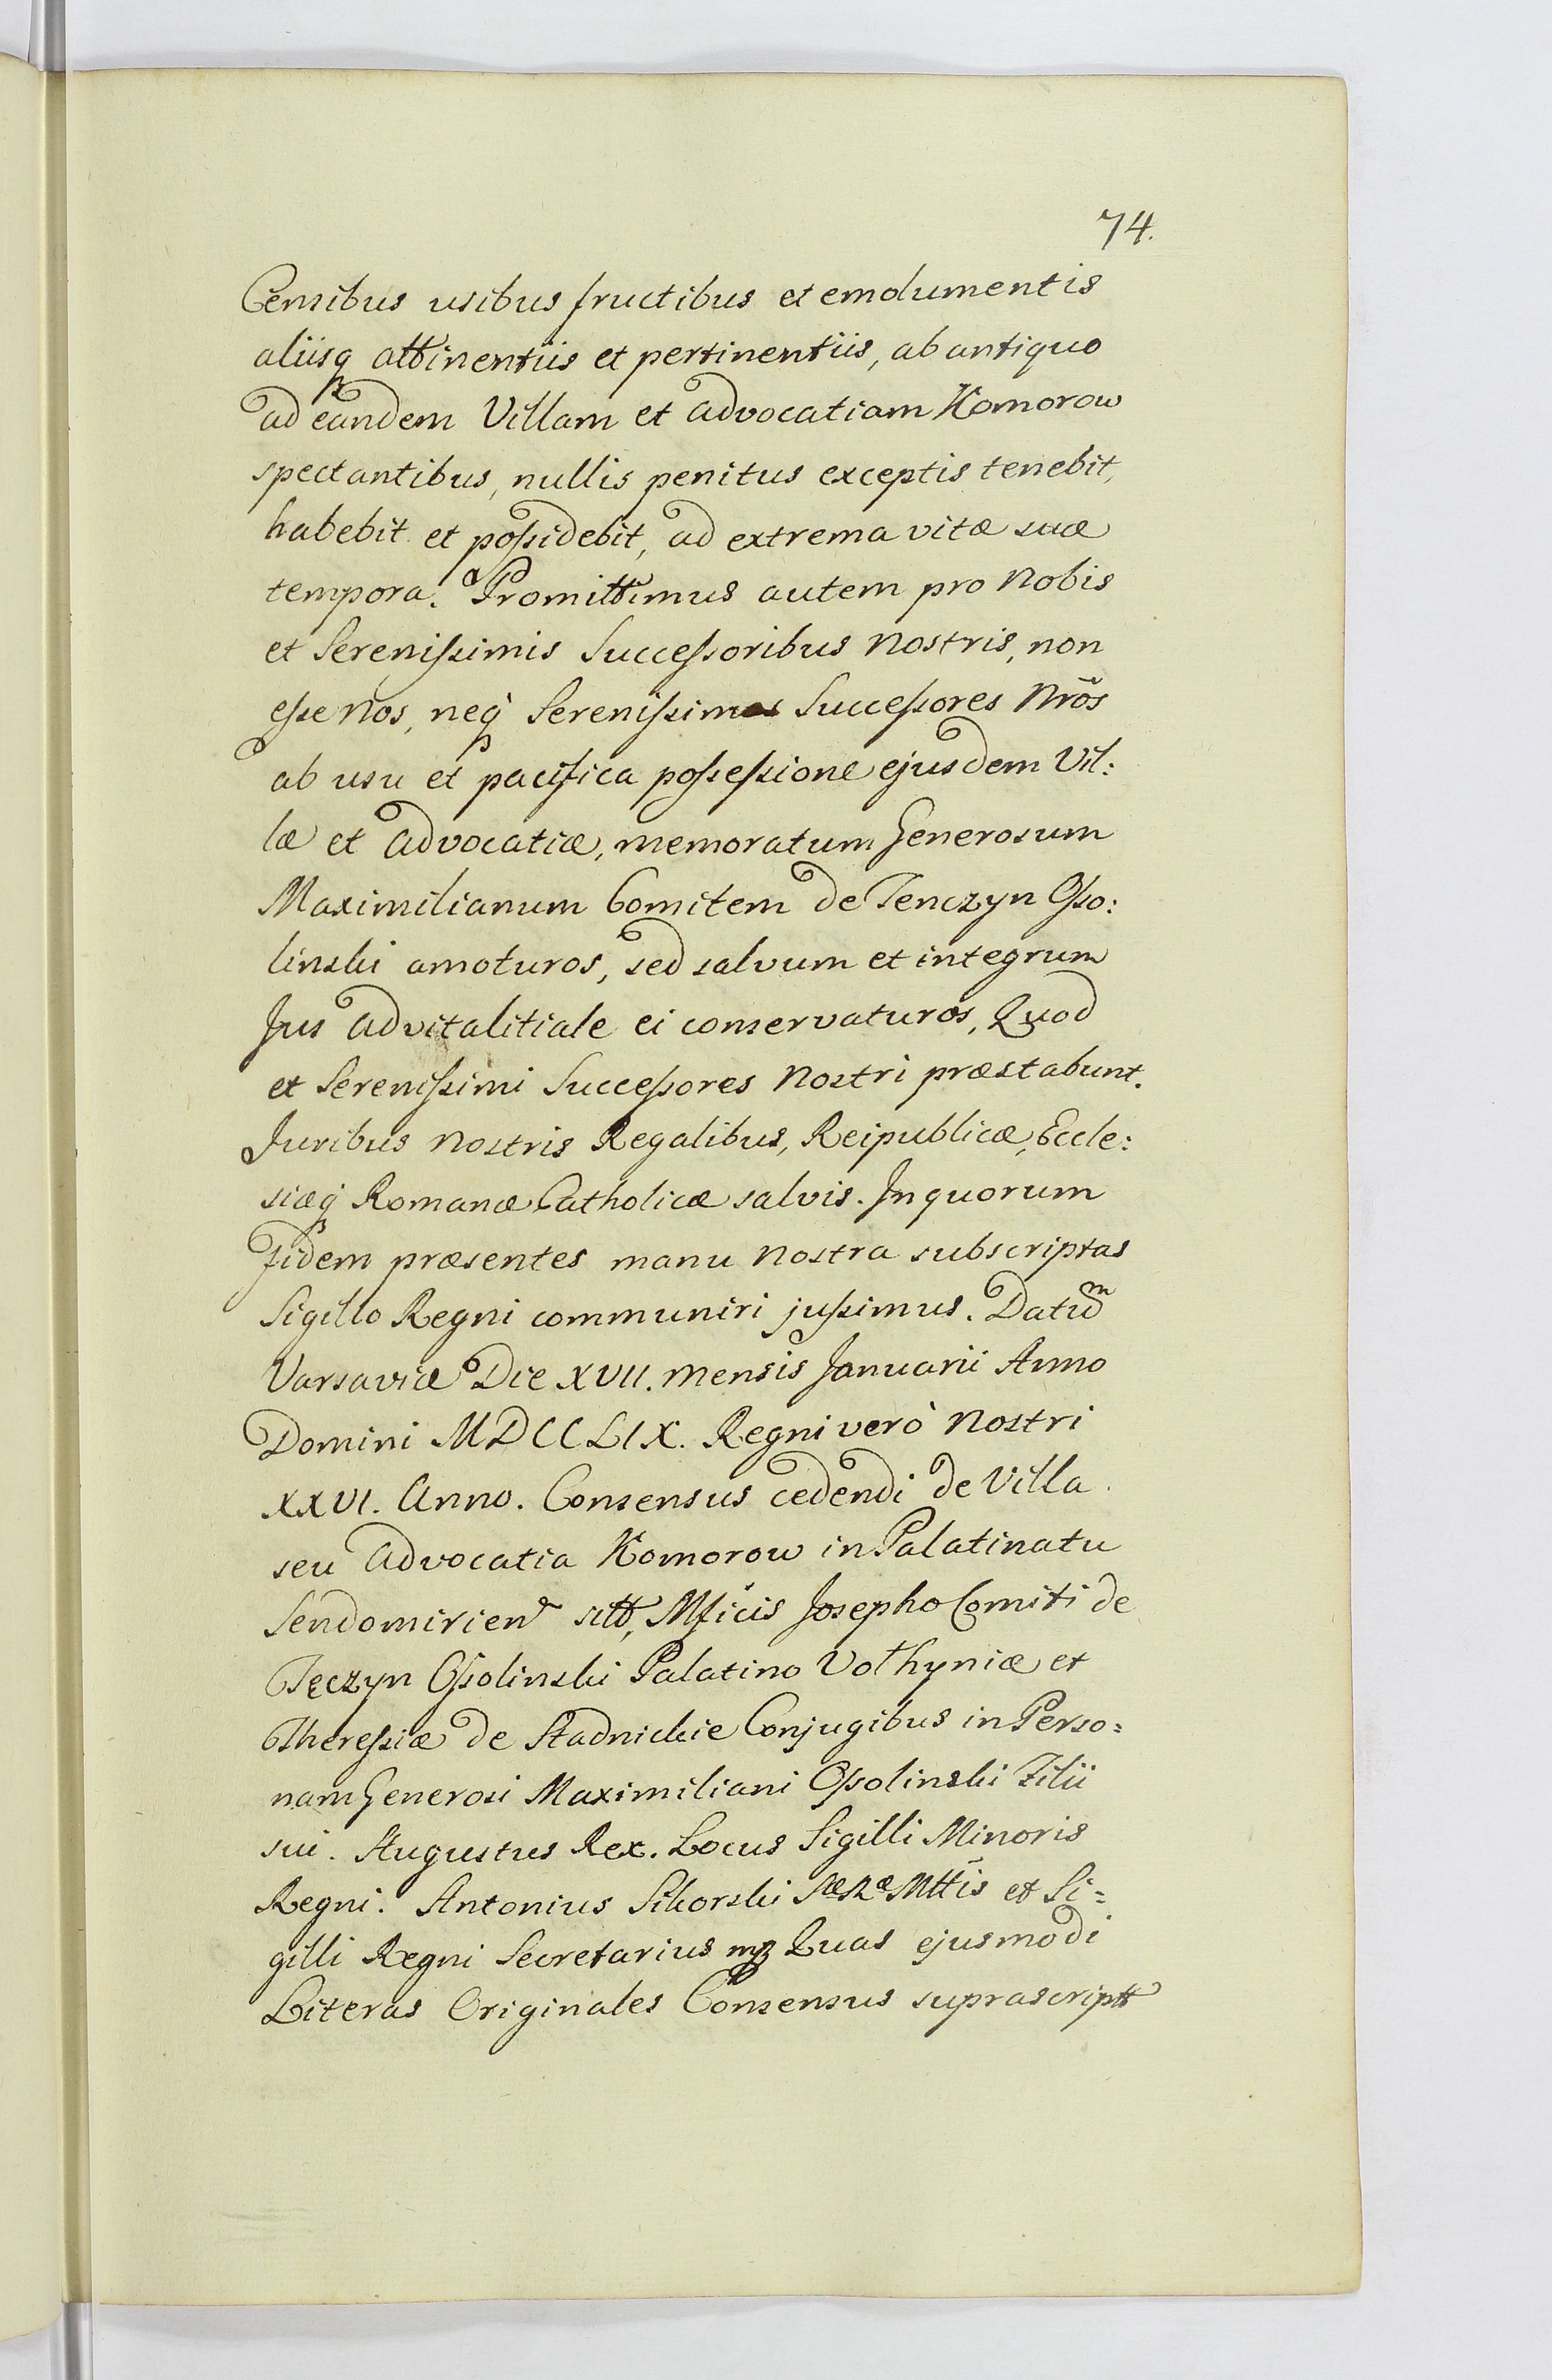 74.
Censibus usibus fructibus et emolumentis
aliisq attinentiis et pertinentiis, ab antiquo
ad eandem Villam et advocatiam Komorow
spectantibus, nullis penitus exceptis tenebit,
habebit et poſsidebit, ad extrema vitæ suæ
tempora. Promittimus autem pro Nobis
et Sereniſsimis Succeſsoribus Nostris, non
eſse Nos, neq Sereniſsimos Succeſsores Nrõs
ab usu et pacifica poſseſsione ejusdem Vil:
læ et advocatiæ, memoratum Generosum
Maximilianum Comitem de Tenczyn Oſso:
linski amoturos, sed salvum et integrum
Jus advitalitiale ei conservaturos, Quod
et Sereniſsimi Succeſsores Nostri præstabunt.
Juribus Nostris Regalibus, Reipublicæ, Eccle:
siæq Romanæ Catholicæ salvis. In quorum
Fidem præsentes manu Nostra subscriptas
Sigillo Regni communiri juſsimus. Datum
Varsaviæ Die XVII. Mensis Januarii Anno
Domini MDCCLIX. Regni verò Nostri
XXVI. Anno. Consensus cedendi de Villa
seu advocatia Komorow in Palatinatu
Sendomirien sitt, Mficis Josepho Comiti de
Tęczyn Oſsolinski Palatino Vołhyniæ et
Thereſsiæ de Stadnickie Conjugibus in Perso=
nam Generosi Maximiliani Oſsolinski Filii
sui. Augustus Rex. Locus Sigilli Minoris
Regni. Antonius Sikorski Sæ Ræ Mttis et Si=
gilli Regni Secretarius mp Quas ejusmodi
Literas Originales Consensus suprascriptt